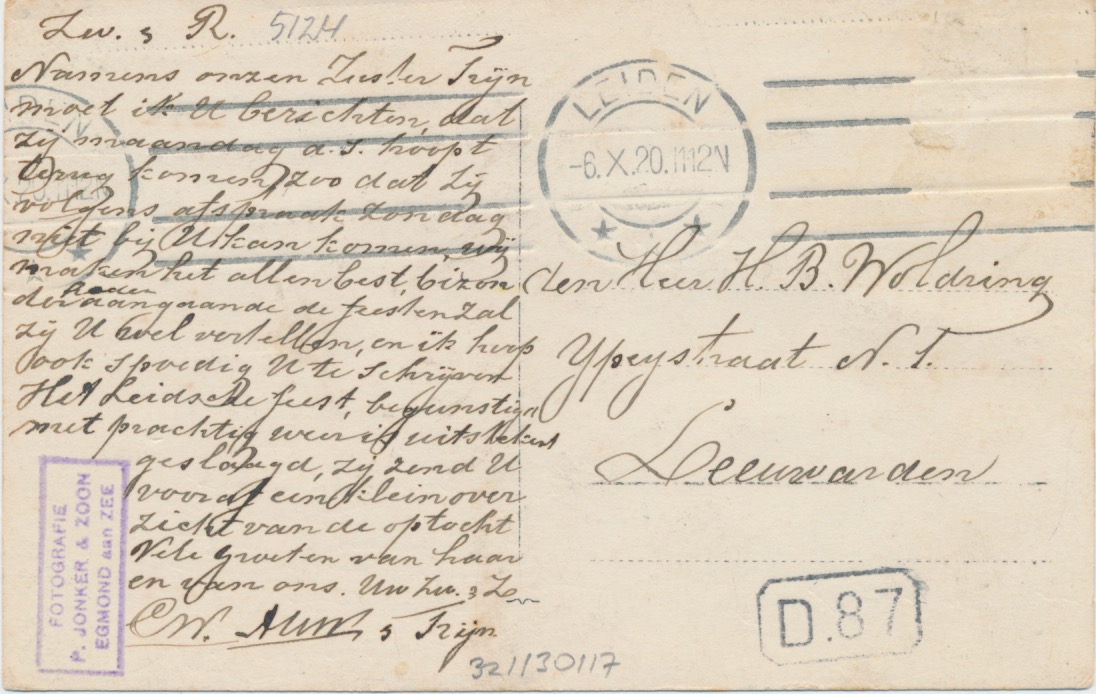 Zw. s R. 5124
Namens onzen Zuster Trijn
moet ik U berichten, dat
zij maandag a.s. hoopt
terug komen, zoo dat zij
volgens afspraak zondag
niet bij U kan komen, wij
maken het allen best, bizon
derheden aangaande de feesten zal
zij U wel vertellen, en ik hoop
ook spoedig U te schrijven
Het Leidsche feest, begunstigd
met prachtig weer is uitstekend
geslaagd, zij zend U
vooraf een klein over
zicht van de optocht
Vele groeten van haar
en van ons. Uw Zw. s Z
s Trijn
321130117
FOTOGRAFIE
P. JONKER & ZOON
EGMOND aan ZEE
LEIDEN
-6.X.20.1112N
den Heer H. B. Woldring
Ypeystraat N. 1.
Leeuwarden
D.87